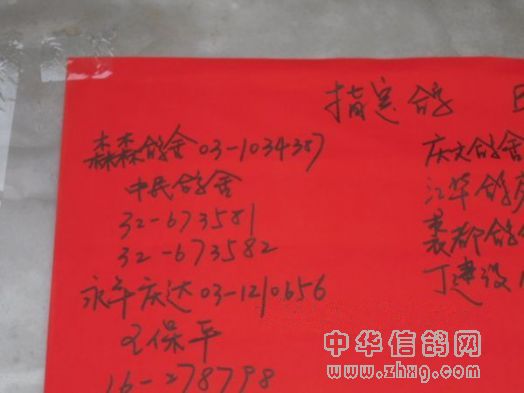 指定鸽
森森鸽舍 03-1034387
中民鸽舍
32-673581
32-673582
永年庆达 03-1210656
王保平
16-278798
庆文鸽舍
江华鸽
裘都鸽
丁建设
中华信鸽网
www.zhxg.com